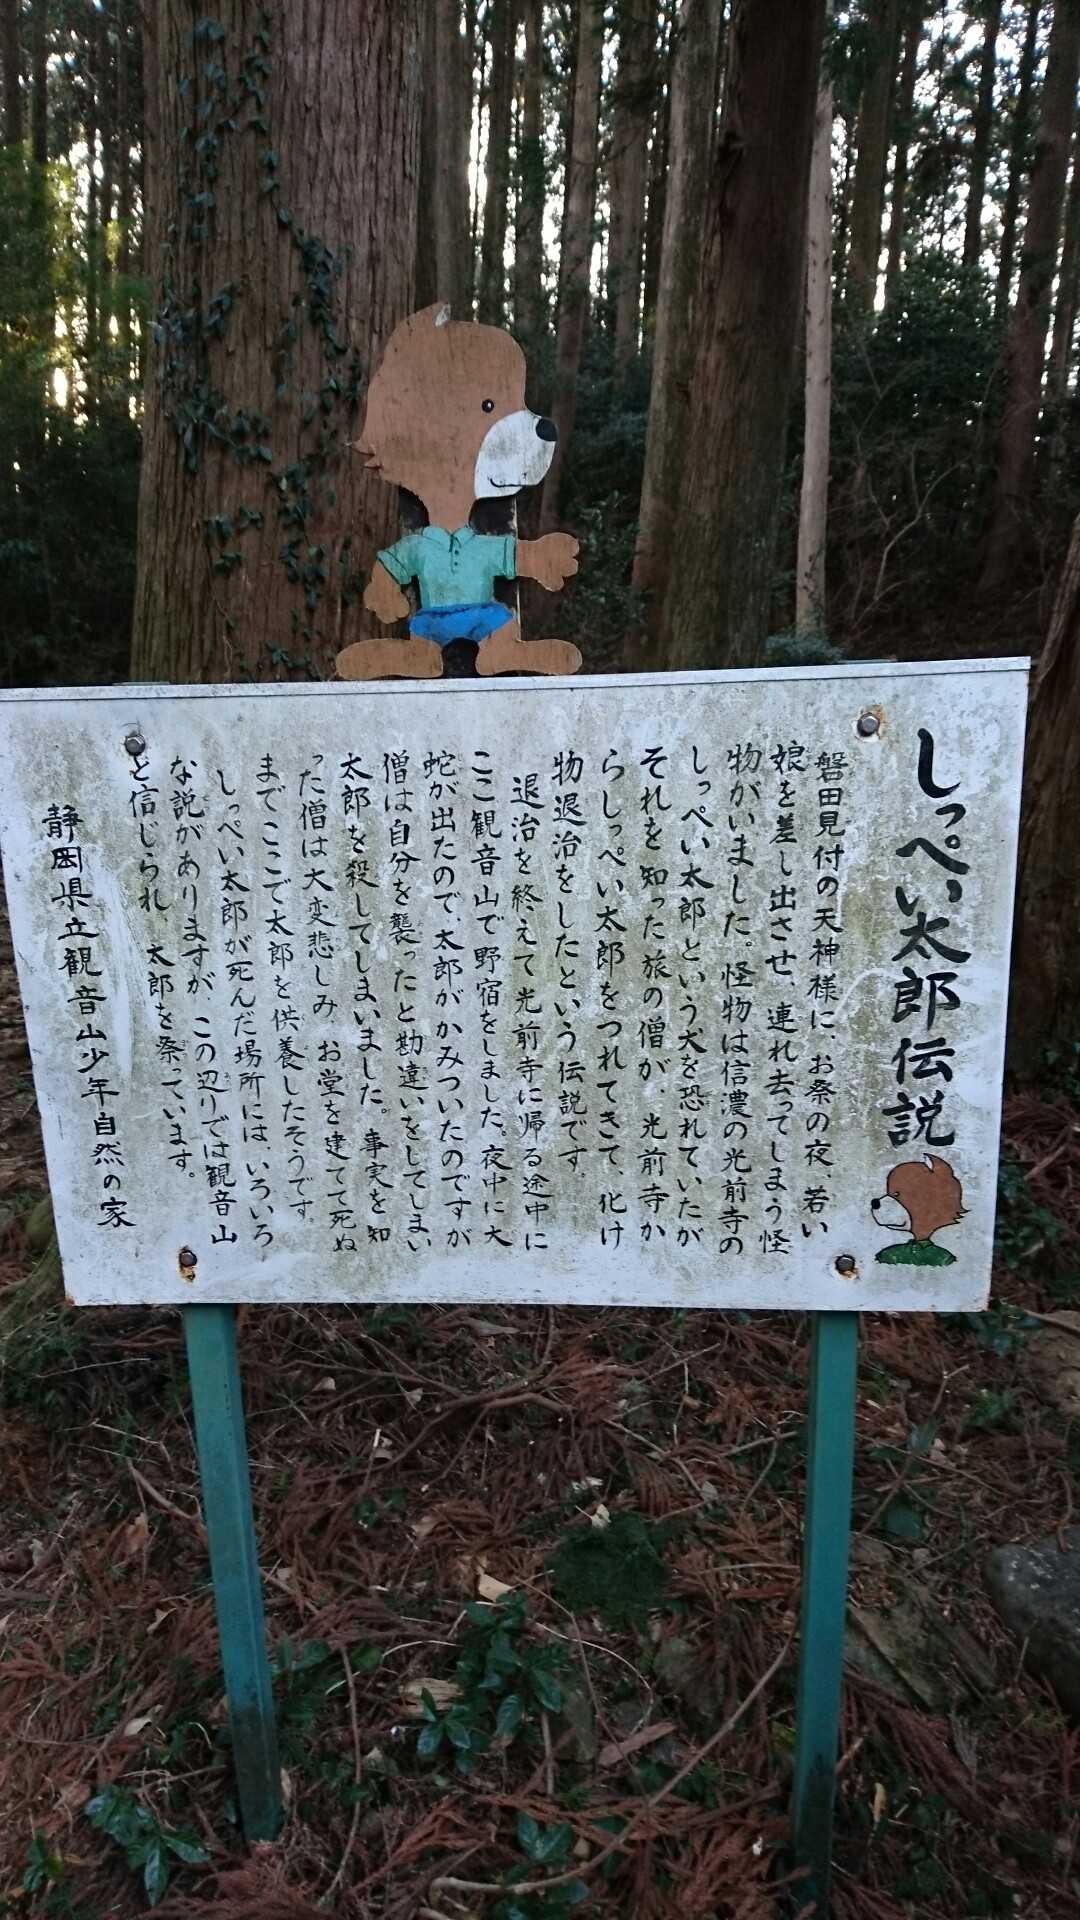 しっぺい太郎伝説
磐田見付の天神様に、お祭の夜、若い
娘を差し出させ、連れ去ってしまう怪
物がいました。怪物は信濃の光前寺の
しっぺい太郎という犬を恐れていたが
それを知った旅の僧が、光前寺か
らしっぺい太郎をつれてきて、化け
物退治をしたという伝説です。
退治を終えて光前寺に帰る途中に
ここ観音山で野宿をしました。夜中に大
蛇が出たので、太郎がかみついたのですが
僧は自分を襲ったと勘違いをしてしまい
太郎を殺してしまいました。事実を知
った僧は大変悲しみ、お堂を建てて死ぬ
までここで太郎を供養したそうです。
しっぺい太郎が死んだ場所には、いろいろ
な説がありますが、この辺りでは観音山
と信じられ、太郎を祭っています。
静岡県立観音山少年自然の家